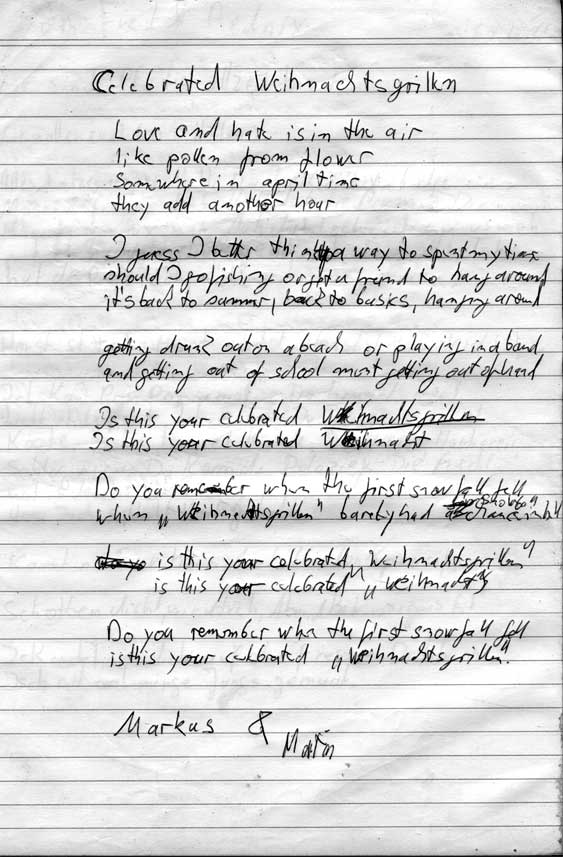 Celebrated Weihnachtsgrillen
Love and hate is in the air
like pollen from flower
Somwhere in april time
they add another hour
I guess I better think a way to spent my time
should I go fishing or get a friend to hang around
it's back to summer, back to basiks, hanging around
getting drunk out on a beach or playing in a band
and getting out of school most getting out of hand
Is this your celebrated Weihnachtsgrillen
Is this your celebrated Weihnacht
Do you remember when the first snowfall fell
when „Weihnachtsgrillen" barely had a
is this your celebrated „Weihnachtsgrillen"
is this your celebrated „Weihnacht"
Do you remember whn the first snowfall fell
is this your celebrated „Weihnachtsgrillen".
Markus & Martin